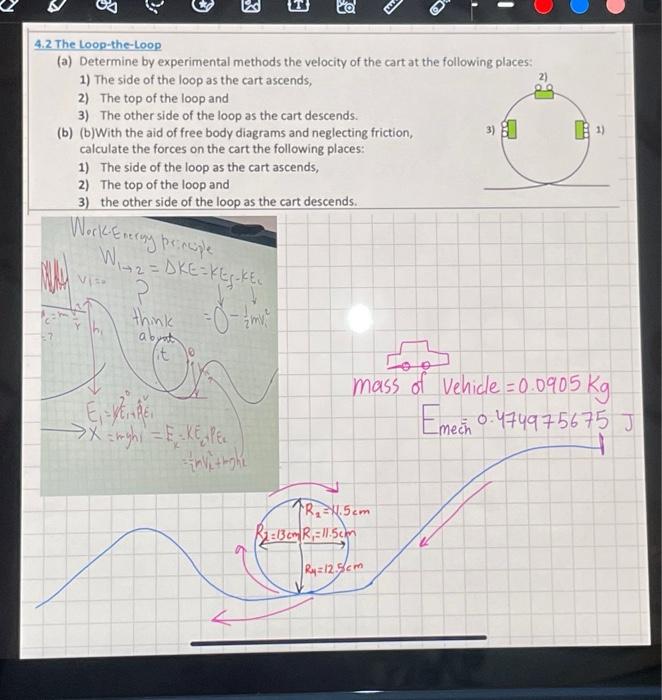 4.2 The Loop-the-Loop
(a) Determine by experimental methods the velocity of the cart at the following places:
1) The side of the loop as the cart ascends,
2) The top of the loop and
3) The other side of the loop as the cart descends.
(b) (b)With the aid of free body diagrams and neglecting friction,
calculate the forces on the cart the following places:
1) The side of the loop as the cart ascends,
2) The top of the loop and
3) the other side of the loop as the cart descends.
2)
3)
1)
Work-Energy principle
W₁→₂ = ΔKE = KEf - KEi
V₁=0
?
think
about
it
= 0 - ½mvi²
h₁
mass of Vehicle = 0.0905 Kg
Emech = 0.474975675 J
R₂=11.5cm
R₃=13cm R₁=11.5cm
R₄=12.5cm